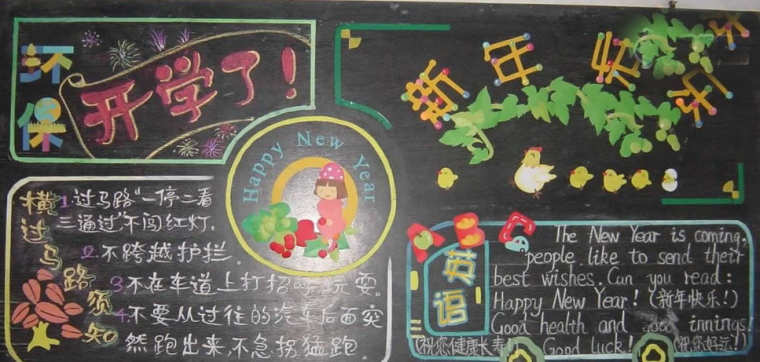 环保
开学了!
新年展
Happy New Year
横过马路须知
1.过马路"一停二看
三通过"不闯红灯.
2.不跨越护拦.
3.不在车道上打招呼玩耍。
4.不要从过往的汽车后面突
然跑出来,不急拐猛跑.
英语
The New Year is coming,
people like to send their
best wishes. Can you read:
Happy New Year! (新年快乐!)
Good health and innings!
(祝您健康长寿!) Good luck! (祝您好运!)